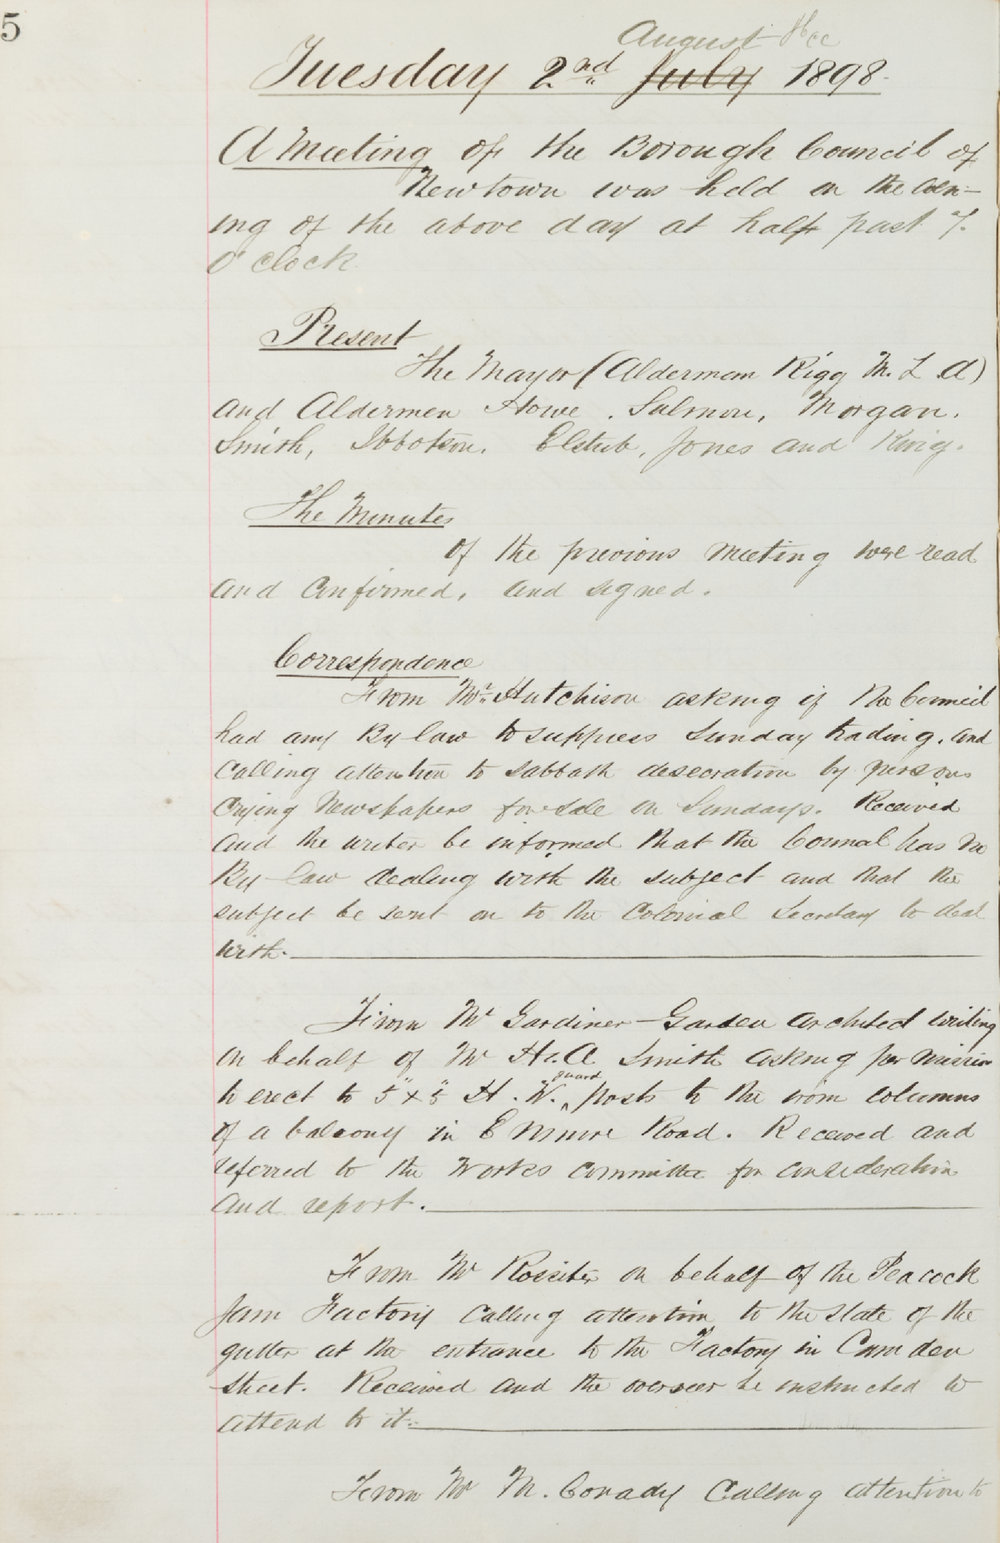 5
August
Tuesday 2nd July 1898.
A Meeting of the Borough Council of
Newtown was held on the even-
ing of the above day at half past 7.
O'clock
Present
The Mayor (Alderman Rigg M. L. A)
and Aldermen Howe, Salmon, Morgan,
Smith, Ibbotson, Elstub, Jones and King.
The Minutes
of the previous meeting were read
and Confirmed, and signed.
Correspondence
From Mr. Hutchison asking if the Council
had any By-law to suppress Sunday trading, and
Calling attention to Sabbath desecration by persons
Crying Newspapers for sale on Sundays. Received
and the writer be informed that the Council has no
By-law dealing with the subject and that the
subject be sent on to the Colonial Secretary to deal
with.
From Mr Gardiner Garden Architect writing
on behalf of Mr H. A Smith asking permission
to erect to 5" x 5" H. W. guard posts to the iron columns
of a balcony in Enmore Road. Received and
referred to the Works Committee for consideration
and report.
From Mr Rossiter on behalf of the Peacock
Jam Factory Calling attention to the state of the
gutter at the entrance to the Factory in Camden
street. Received and the overseer be instructed to
attend to it.
From Mr M. Conady Calling attention to